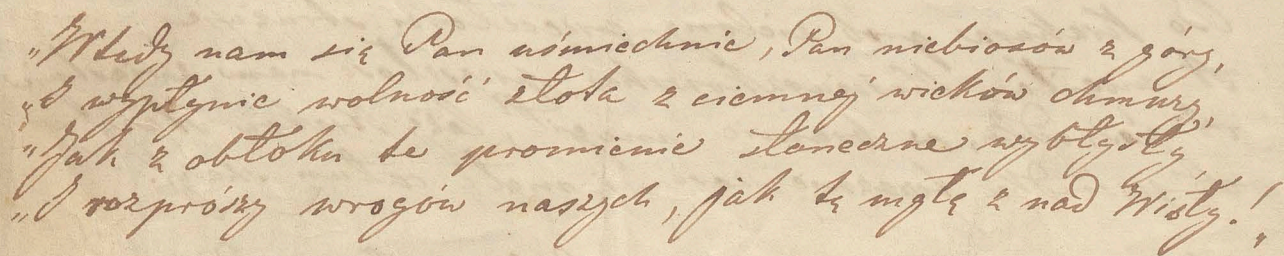 „Wtedy nam się Pan uśmiechnie, Pan niebiosów z góry,
„I wypłynie wolność złota z ciemnej wieków chmury,
„Jak z obłoku te promienie słoneczne wybłysły
„I rozprószy wrogów naszych, jak tę mgłę z nad Wisły!„